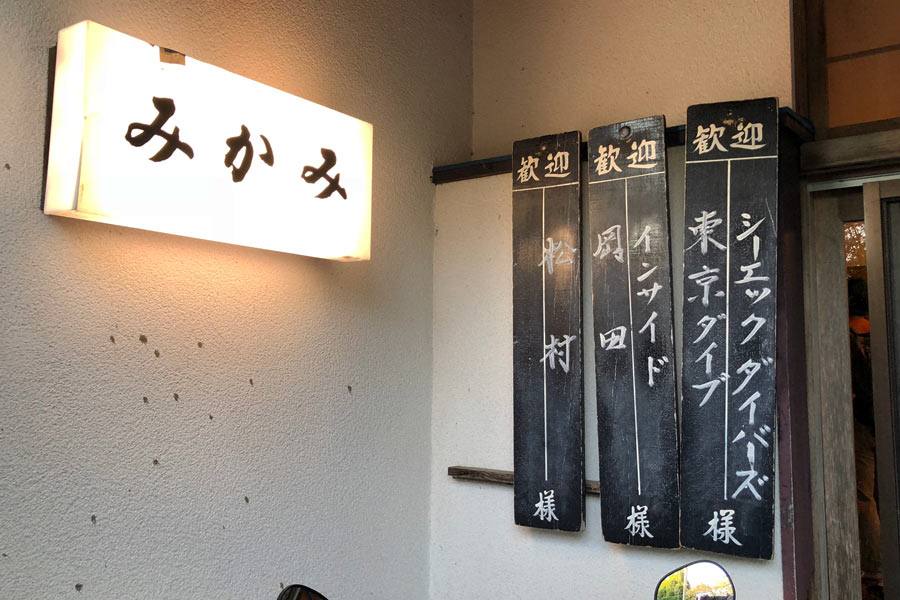 みかみ
歓迎
シーエックダイバーズ
東京ダイブ
様
歓迎
インサイド
岡田
様
歓迎
松村
様